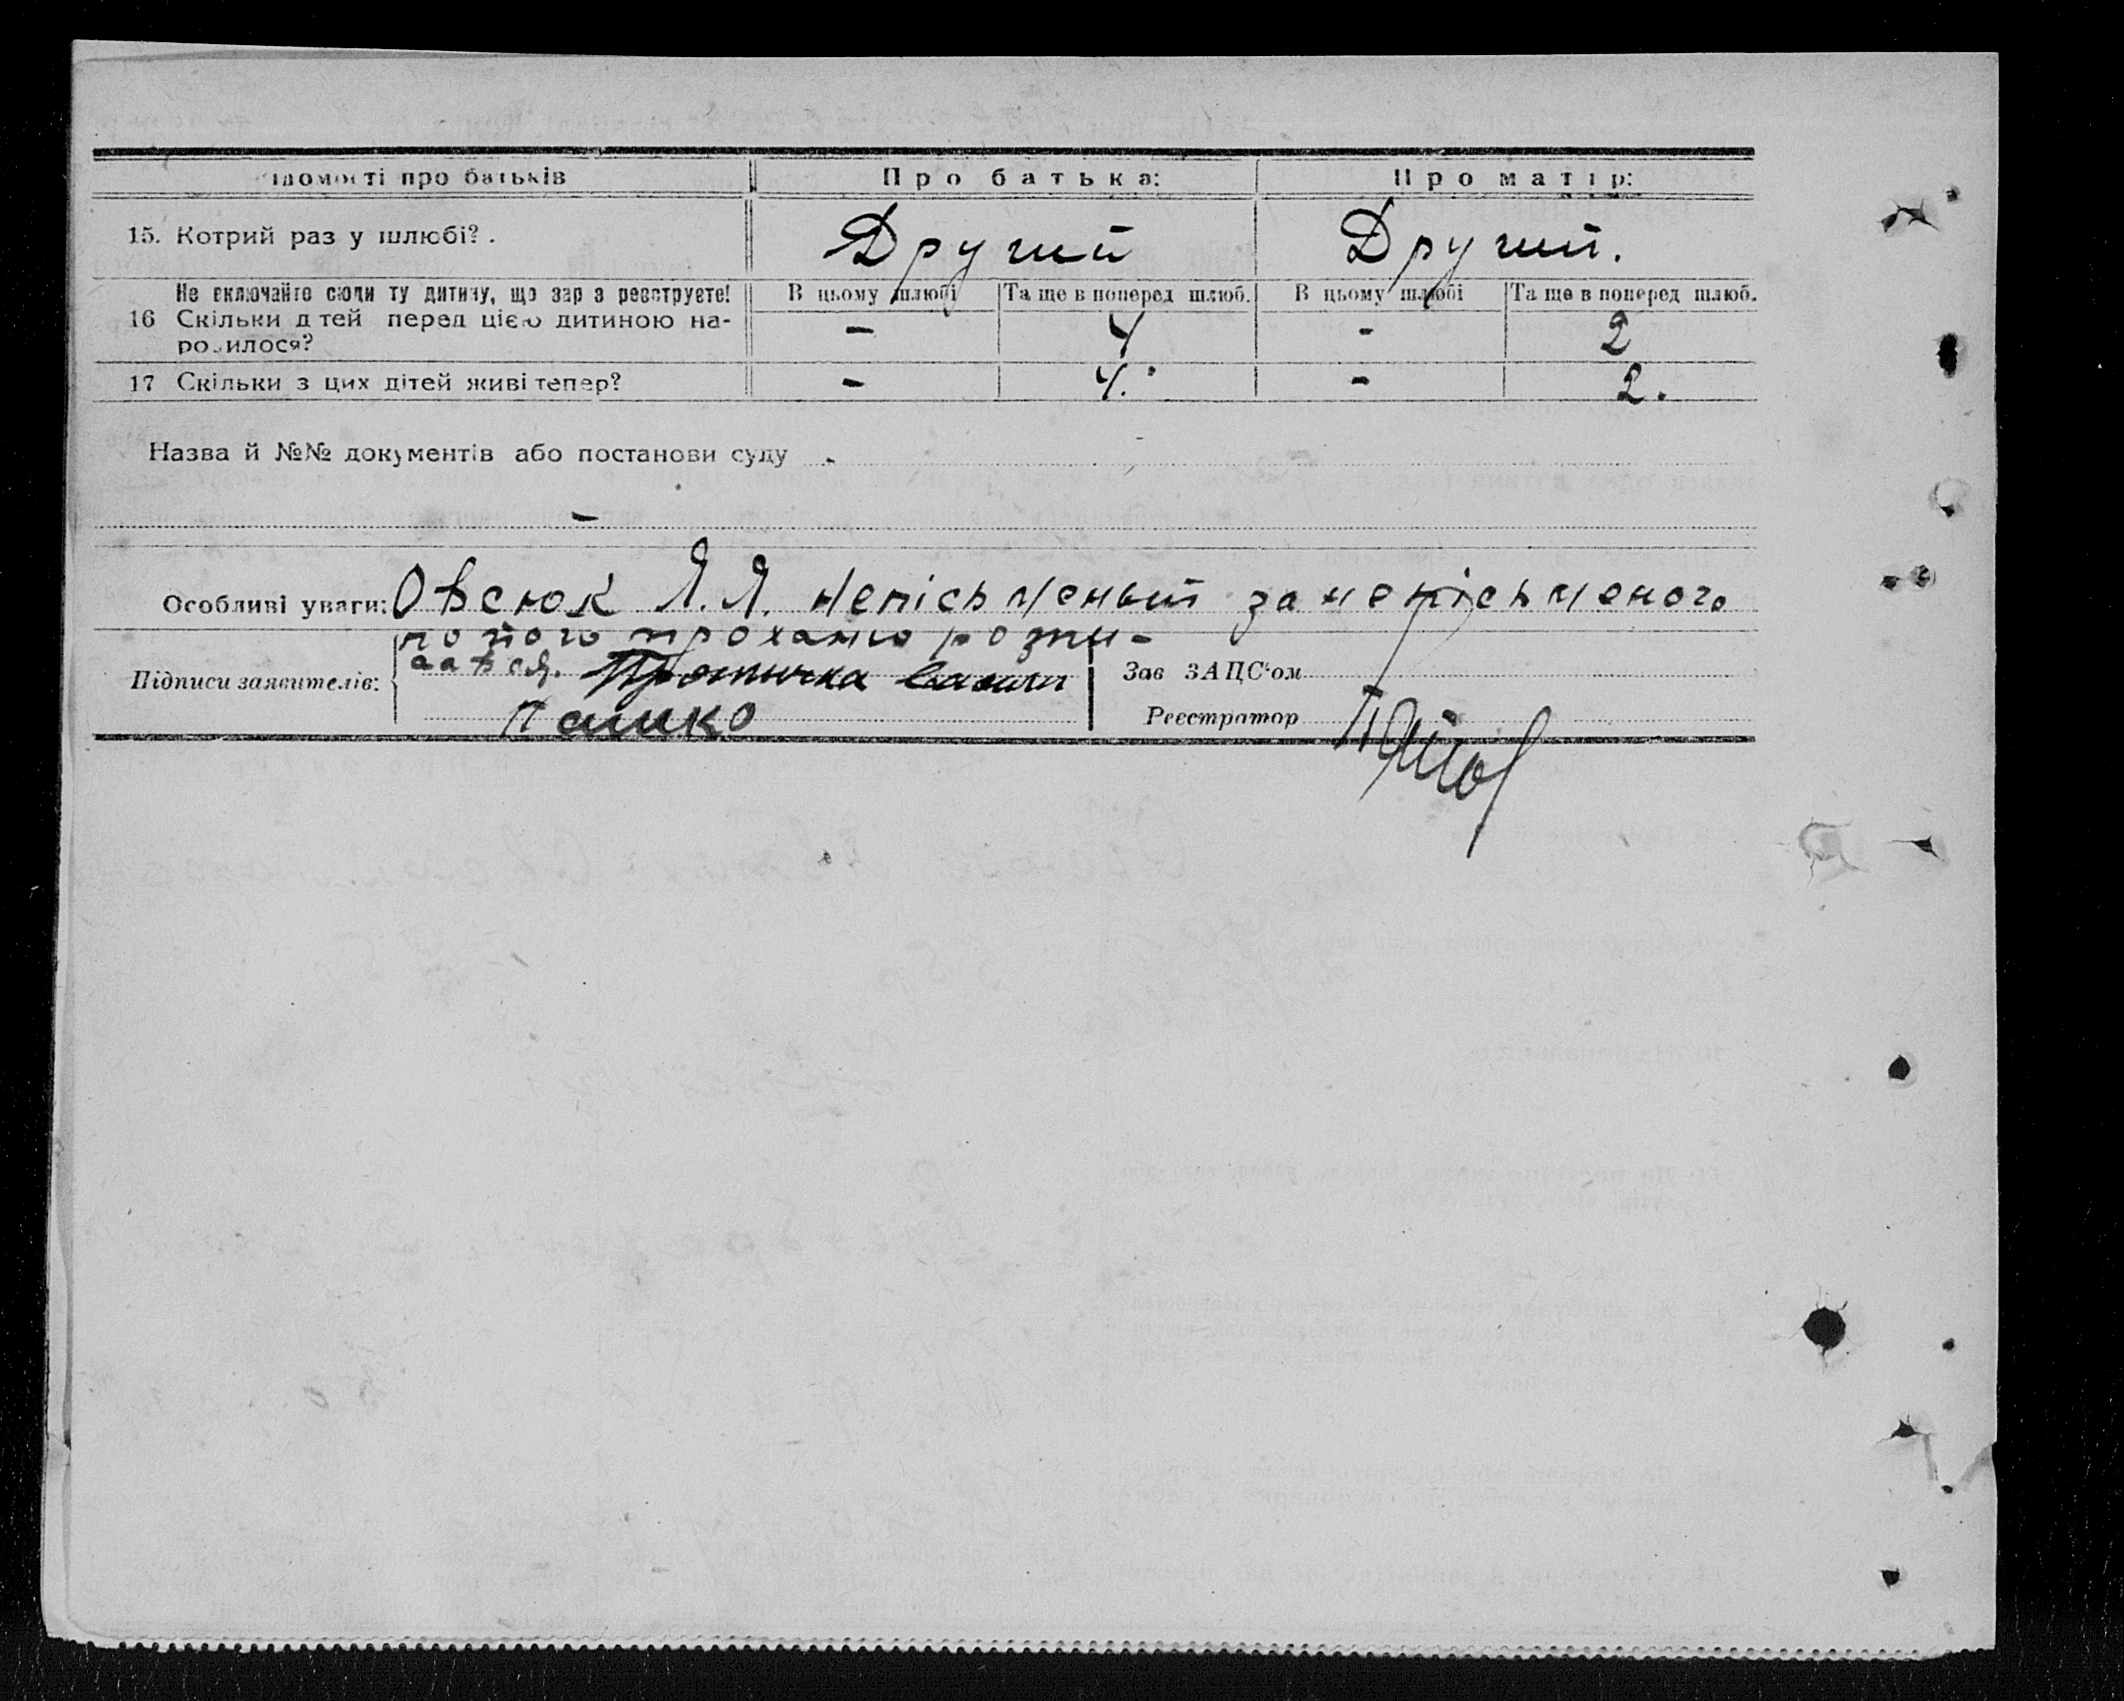 ідомості про батьків Про батька: Про матір:
15. Котрий раз у шлюбі? . Другий Другий.
Не включайте сюди ту дитину, що зараз реєструєте! В цьому шлюбі Та ще в поперед шлюб. В цьому шлюбі Та ще в поперед шлюб.
16 Скільки дітей перед цією дитиною на- - 4 - 2
родилося?
17 Скільки з цих дітей живі тепер? - 4. - 2.
Назва й №№ документів або постанови суду -
-
Особливі уваги: Овсюк Я. Я. непісьменый за непісьменого
по його проханю розпи-
Підписи заявителів: савсь. Зав ЗАЦС'ом
Пашко Реєстратор